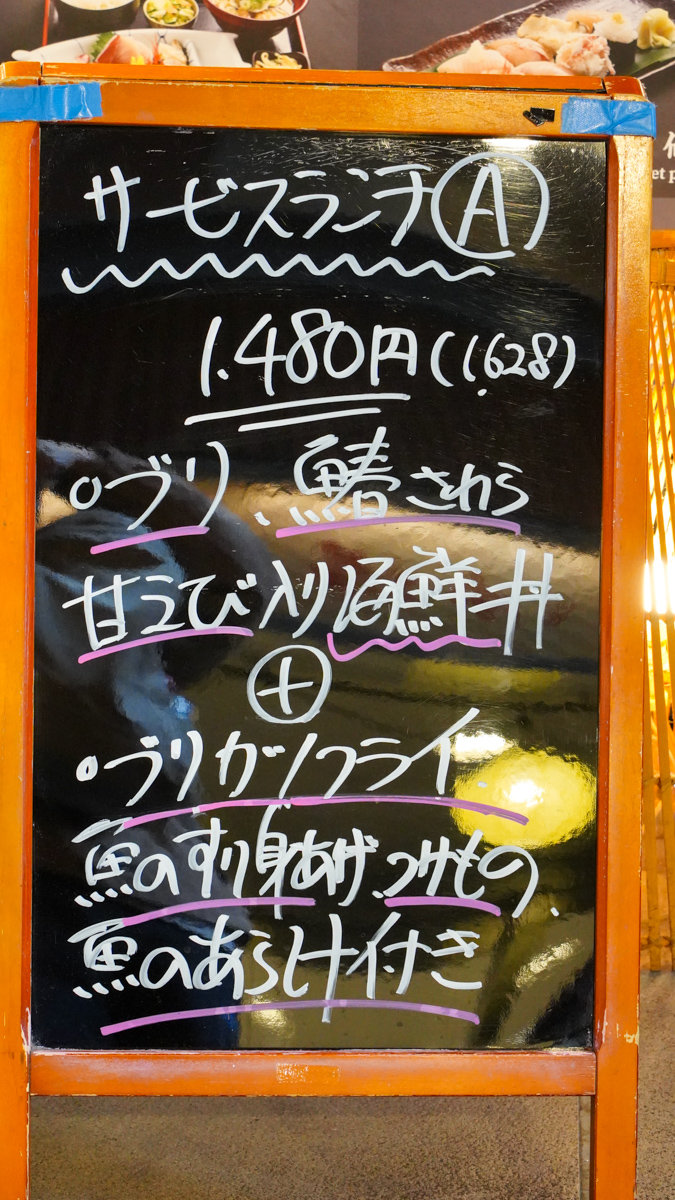 サービスランチⒶ
1.480円(1.628)
○ブリ、鰆さわら
甘えび入り海鮮丼
⊕
○ブリカツフライ.
魚のすり身あげ.つけもの、
魚のあら汁付き
et p